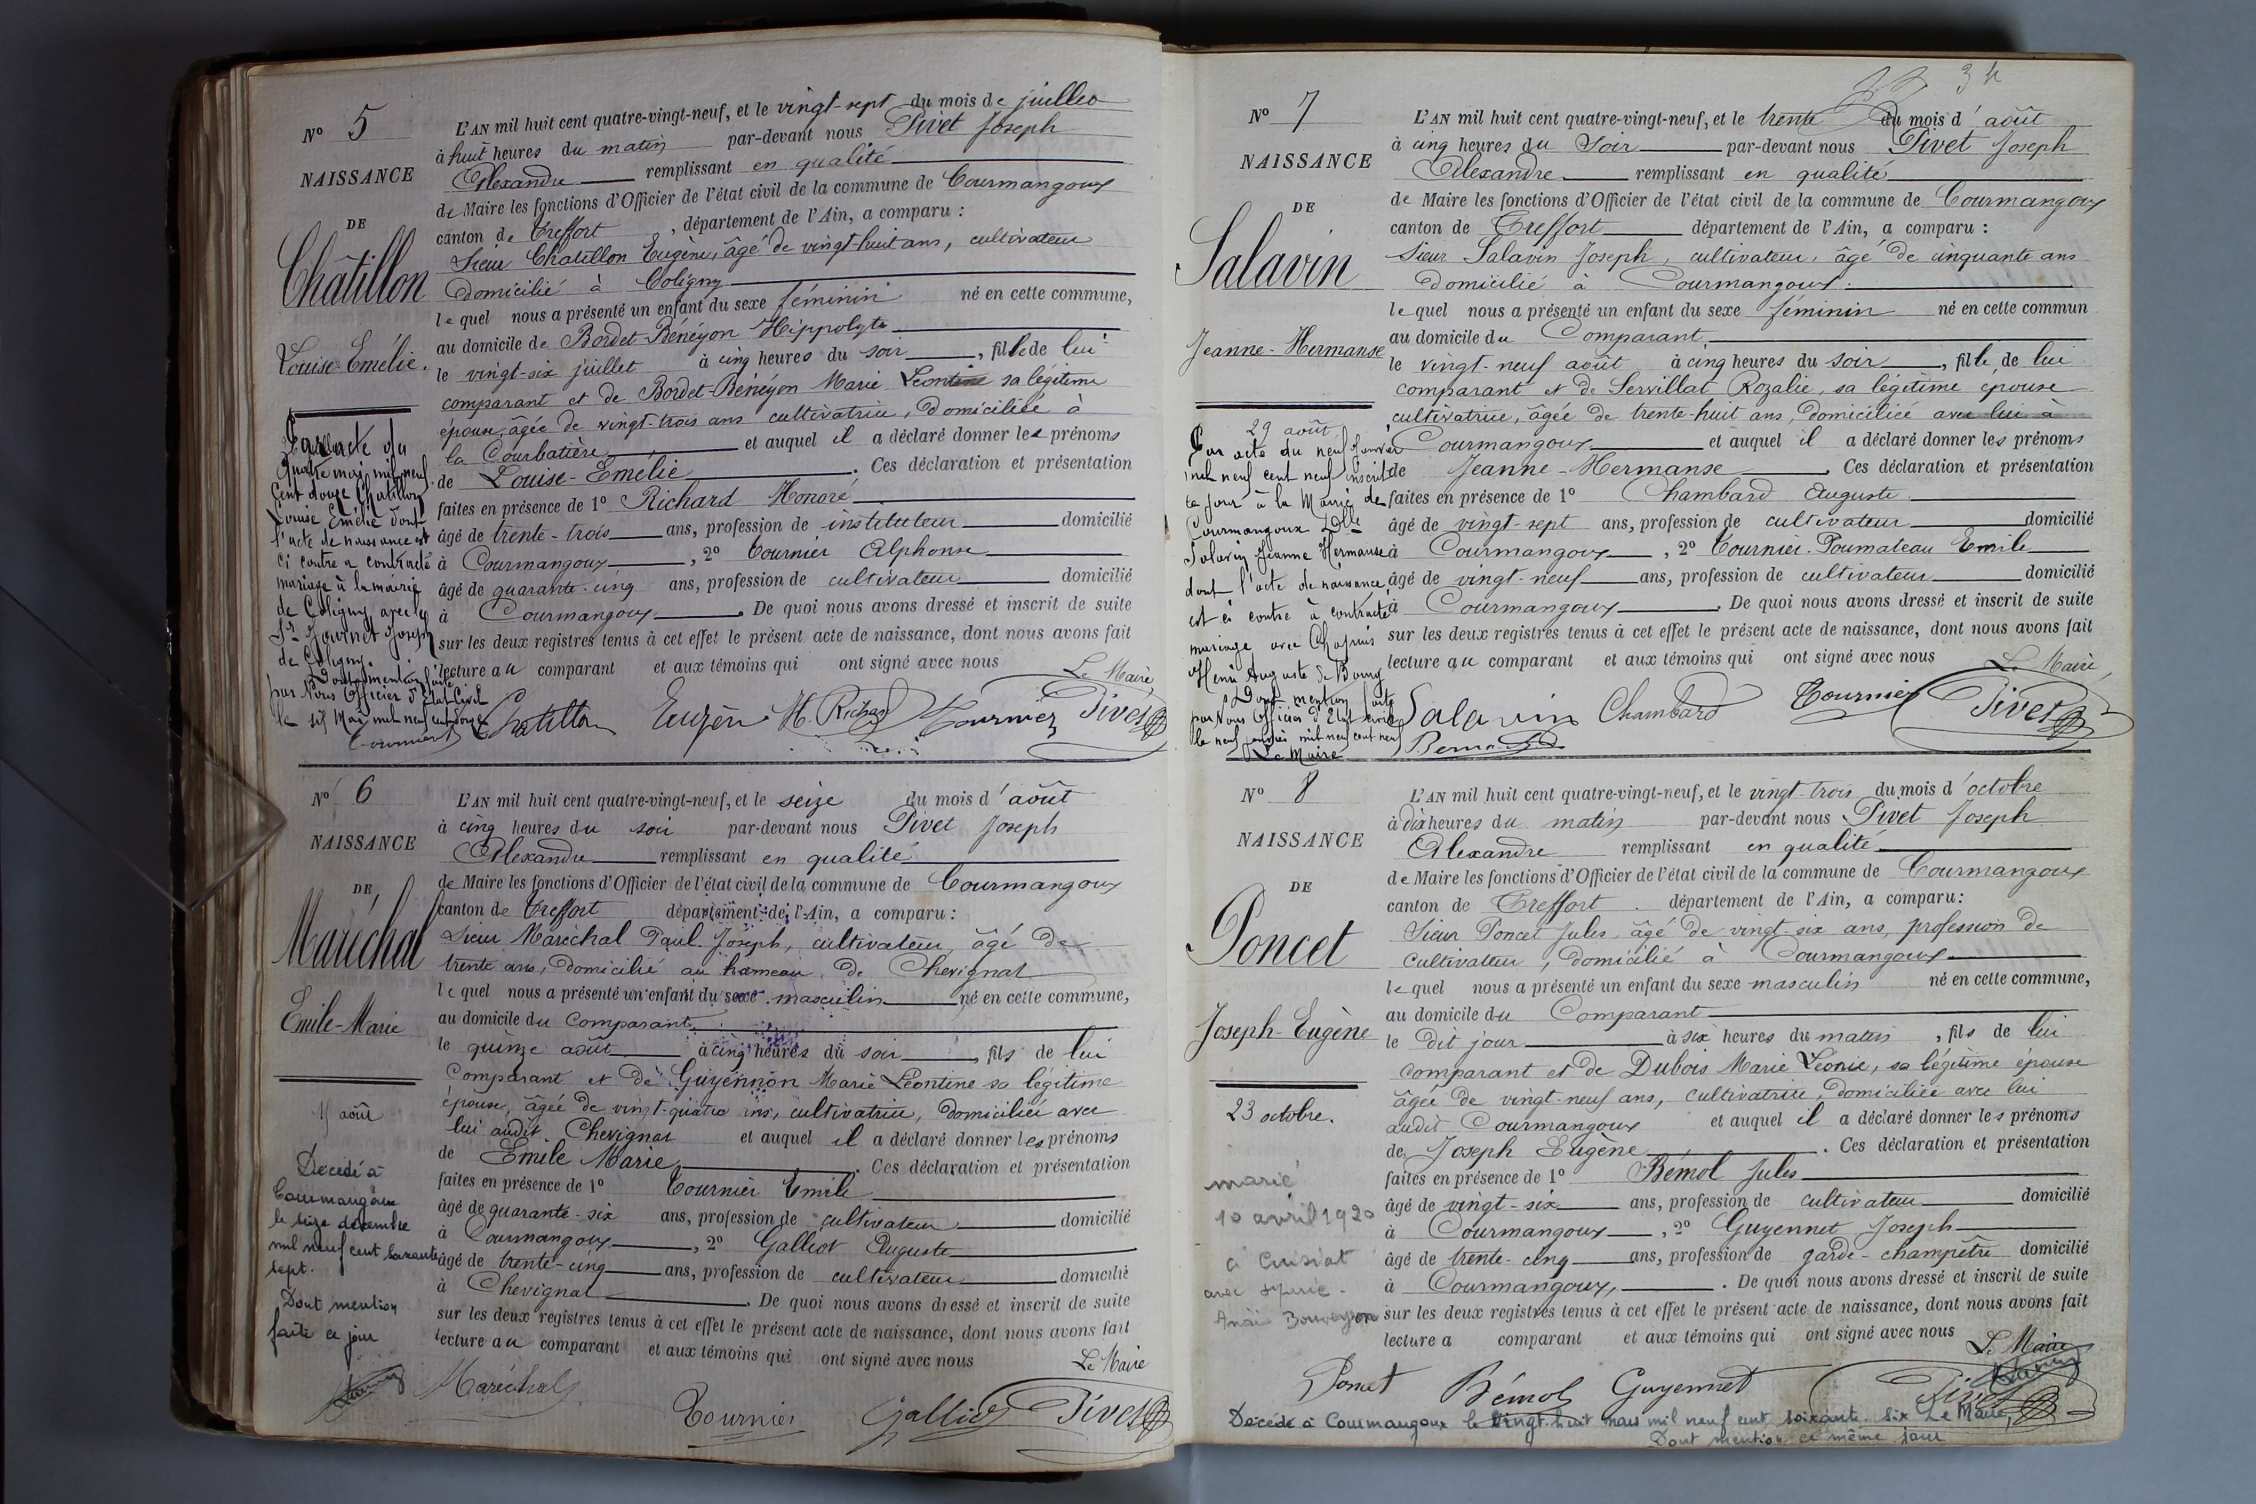 No 5
NAISSANCE
DE
Châtillon
Louise-Emélie.
Par acte du
quatre mai mil neuf
cent douze Chatillon
Louise Emélie dont
l'acte de naissance est
ci contre a contracté
mariage à la mairie
de Coligny avec le
Sr Journet Joseph
de Coligny.
Dont mention faite
par Nous Officier d'Etat Civil
le six Mai mil neuf cent douze
L'AN mil huit cent quatre-vingt-neuf, et le vingt-sept du mois de juillet
à huit heures du matin par-devant nous Pivet Joseph
Alexandre remplissant en qualité
de Maire les fonctions d'Officier de l'état civil de la commune de Courmangoux
canton de Treffort, département de l'Ain, a comparu :
Sieur Chatillon Eugène, âgé de vingt-huit ans, cultivateur
domicilié à Coligny
lequel nous a présenté un enfant du sexe féminin né en cette commune,
au domicile de Bordet-Bénéyon Hippolyte
le vingt-six juillet à cinq heures du soir, fille de lui
comparant et de Bordet-Bénéyon Marie Léontine sa légitime
épouse, âgée de vingt-trois ans cultivatrice, domiciliée à
la Courbatière et auquel il a déclaré donner les prénoms
de Louise-Emélie. Ces déclaration et présentation
faites en présence de 1° Richard Honoré
âgé de trente-trois ans, profession de instituteur domicilié
à Courmangoux, 2° Tournier Alphonse
âgé de quarante-cinq ans, profession de cultivateur domicilié
à Courmangoux. De quoi nous avons dressé et inscrit de suite
sur les deux registres tenus à cet effet le présent acte de naissance, dont nous avons fait
lecture au comparant et aux témoins qui ont signé avec nous
Le Maire,
Chatillon Eugène H. Richard Tournier Pivet
No 6
NAISSANCE
DE
Maréchal
Emile-Marie
15 août
Décédé à
Courmangoux
le seize décembre
mil neuf cent soixante
sept.
Dont mention
faite ce jour
L'AN mil huit cent quatre-vingt-neuf, et le seize du mois d'août
à cinq heures du soir par-devant nous Pivet Joseph
Alexandre remplissant en qualité
de Maire les fonctions d'Officier de l'état civil de la commune de Courmangoux
canton de Treffort département de l'Ain, a comparu :
Sieur Maréchal Paul Joseph, cultivateur, âgé de
trente ans, domicilié au hameau de Chevignat
lequel nous a présenté un enfant du sexe masculin né en cette commune,
au domicile du Comparant
le quinze août à cinq heures du soir, fils de lui
comparant et de Guyennon Marie Léontine sa légitime
épouse, âgée de vingt-quatre ans, cultivatrice, domiciliée avec
lui audit Chevignat et auquel il a déclaré donner les prénoms
de Emile Marie. Ces déclaration et présentation
faites en présence de 1° Tournier Emile
âgé de quarante-six ans, profession de cultivateur domicilié
à Courmangoux, 2° Galliot Auguste
âgé de trente-cinq ans, profession de cultivateur domicilié
à Chevignat. De quoi nous avons dressé et inscrit de suite
sur les deux registres tenus à cet effet le présent acte de naissance, dont nous avons fait
lecture au comparant et aux témoins qui ont signé avec nous
Le Maire
Maréchal Tournier Galliot Pivet
34
No 7
NAISSANCE
DE
Salavin
Jeanne-Hermanse
29 août
Par acte du neuf Janvier
mil neuf cent neuf inscrit
ce jour à la Mairie de
Courmangoux Dlle
Salavin Jeanne Hermanse
dont l'acte de naissance
est ci contre à contracté
mariage avec Chapuis
Henri Auguste de Bourg
Dont mention faite
par Nous Officier d'Etat civil
le neuf janvier mil neuf cent neuf
Le Maire
L'AN mil huit cent quatre-vingt-neuf, et le trente du mois d'août
à cinq heures du soir par-devant nous Pivet Joseph
Alexandre remplissant en qualité
de Maire les fonctions d'Officier de l'état civil de la commune de Courmangoux
canton de Treffort département de l'Ain, a comparu :
Sieur Salavin Joseph, cultivateur, âgé de cinquante ans
domicilié à Courmangoux.
lequel nous a présenté un enfant du sexe féminin né en cette commun
au domicile du Comparant
le vingt-neuf août à cinq heures du soir, fille, de lui
comparant et de Servillat Rozalie, sa légitime épouse
cultivatrice, âgée de trente-huit ans, domiciliée avec lui à
Courmangoux et auquel il a déclaré donner les prénoms
de Jeanne-Hermanse. Ces déclaration et présentation
faites en présence de 1° Chambard Auguste
âgé de vingt-sept ans, profession de cultivateur domicilié
à Courmangoux, 2° Tournier-Poumateau Emile
âgé de vingt-neuf ans, profession de cultivateur domicilié
à Courmangoux. De quoi nous avons dressé et inscrit de suite
sur les deux registres tenus à cet effet le présent acte de naissance, dont nous avons fait
lecture au comparant et aux témoins qui ont signé avec nous
Le Maire,
Salavin Chambard Tournier Pivet
No 8
NAISSANCE
DE
Poncet
Joseph-Eugène
23 octobre.
marié
10 avril 1920
à Cuisiat
avec Marie
Anaïs Bouveyron
L'AN mil huit cent quatre-vingt-neuf, et le vingt-trois du mois d'octobre
à dix heures du matin par-devant nous Pivet Joseph
Alexandre remplissant en qualité
de Maire les fonctions d'Officier de l'état civil de la commune de Courmangoux
canton de Treffort. département de l'Ain, a comparu:
Sieur Poncet Jules âgé de vingt-six ans, profession de
cultivateur, domicilié à Courmangoux
lequel nous a présenté un enfant du sexe masculin né en cette commune,
au domicile du Comparant
le dit jour à six heures du matin, fils de lui
comparant et de Dubois Marie Léonie, sa légitime épouse
âgée de vingt-neuf ans, cultivatrice, domiciliée avec lui
audit Courmangoux et auquel il a déclaré donner les prénoms
de Joseph Eugène. Ces déclaration et présentation
faites en présence de 1° Bémol Jules
âgé de vingt-six ans, profession de cultivateur domicilié
à Courmangoux, 2° Guyennet Joseph
âgé de trente-cinq ans, profession de garde-champêtre domicilié
à Courmangoux,. De quoi nous avons dressé et inscrit de suite
sur les deux registres tenus à cet effet le présent acte de naissance, dont nous avons fait
lecture a comparant et aux témoins qui ont signé avec nous
Le Maire
Poncet Bémol Guyennet Pivet
Décédé à Courmangoux le vingt-huit mars mil neuf cent soixante-six Le Maire,
Dont mention ce même jour